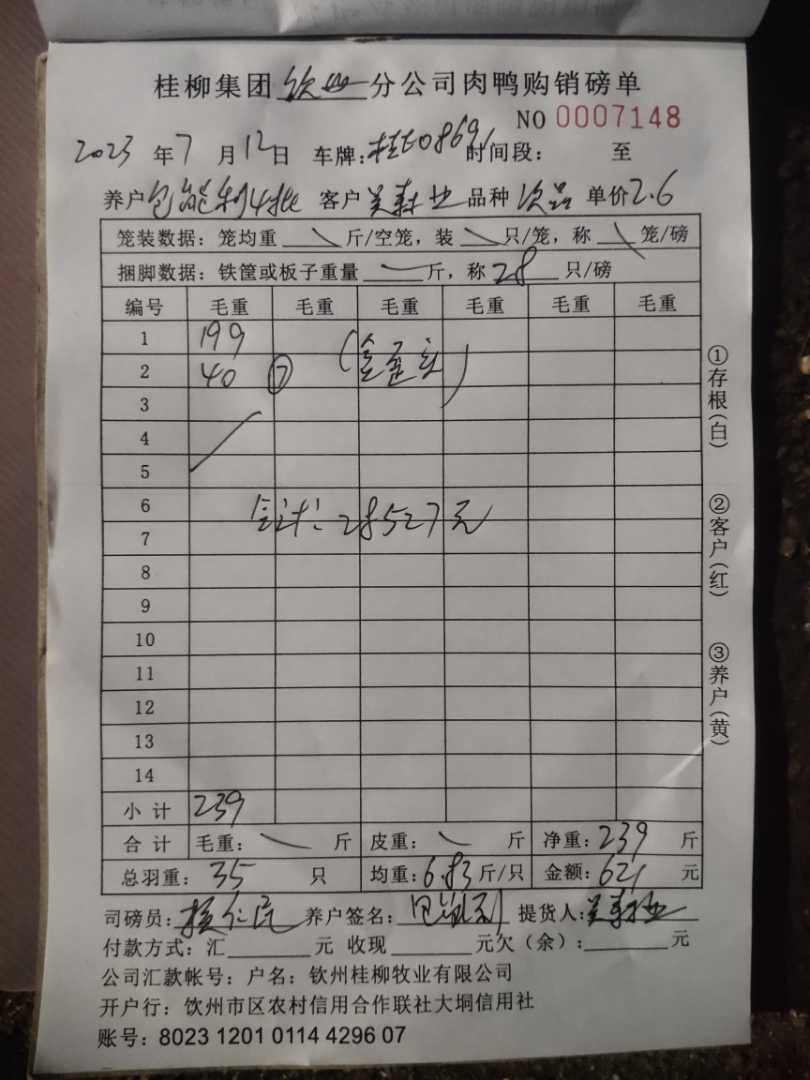 桂柳集团钦州分公司肉鸭购销磅单
NO 0007148
2023年7月12日 车牌: 时间段: 至
养户包能利4批 客户 品种次品 单价2.6
笼装数据:笼均重 斤/空笼,装 只/笼,称 笼/磅
捆脚数据:铁筐或板子重量 斤,称28只/磅
编号 毛重 毛重 毛重 毛重 毛重 毛重
1 199
2 40 ⑦
3
4
5
6
合计:28527元
7
8
9
10
11
12
13
14
小计 239
合计 毛重: 斤 皮重: 斤 净重:239斤
总羽重:35只 均重:6.83斤/只 金额:621元
司磅员: 养户签名:包能利 提货人:
付款方式:汇 元 收现 元欠(余): 元
公司汇款帐号:户名:钦州桂柳牧业有限公司
开户行:饮州市区农村信用合作联社大垌信用社
账号:8023 1201 0114 4296 07
①存根(白)
②客户(红)
③养户(黄)